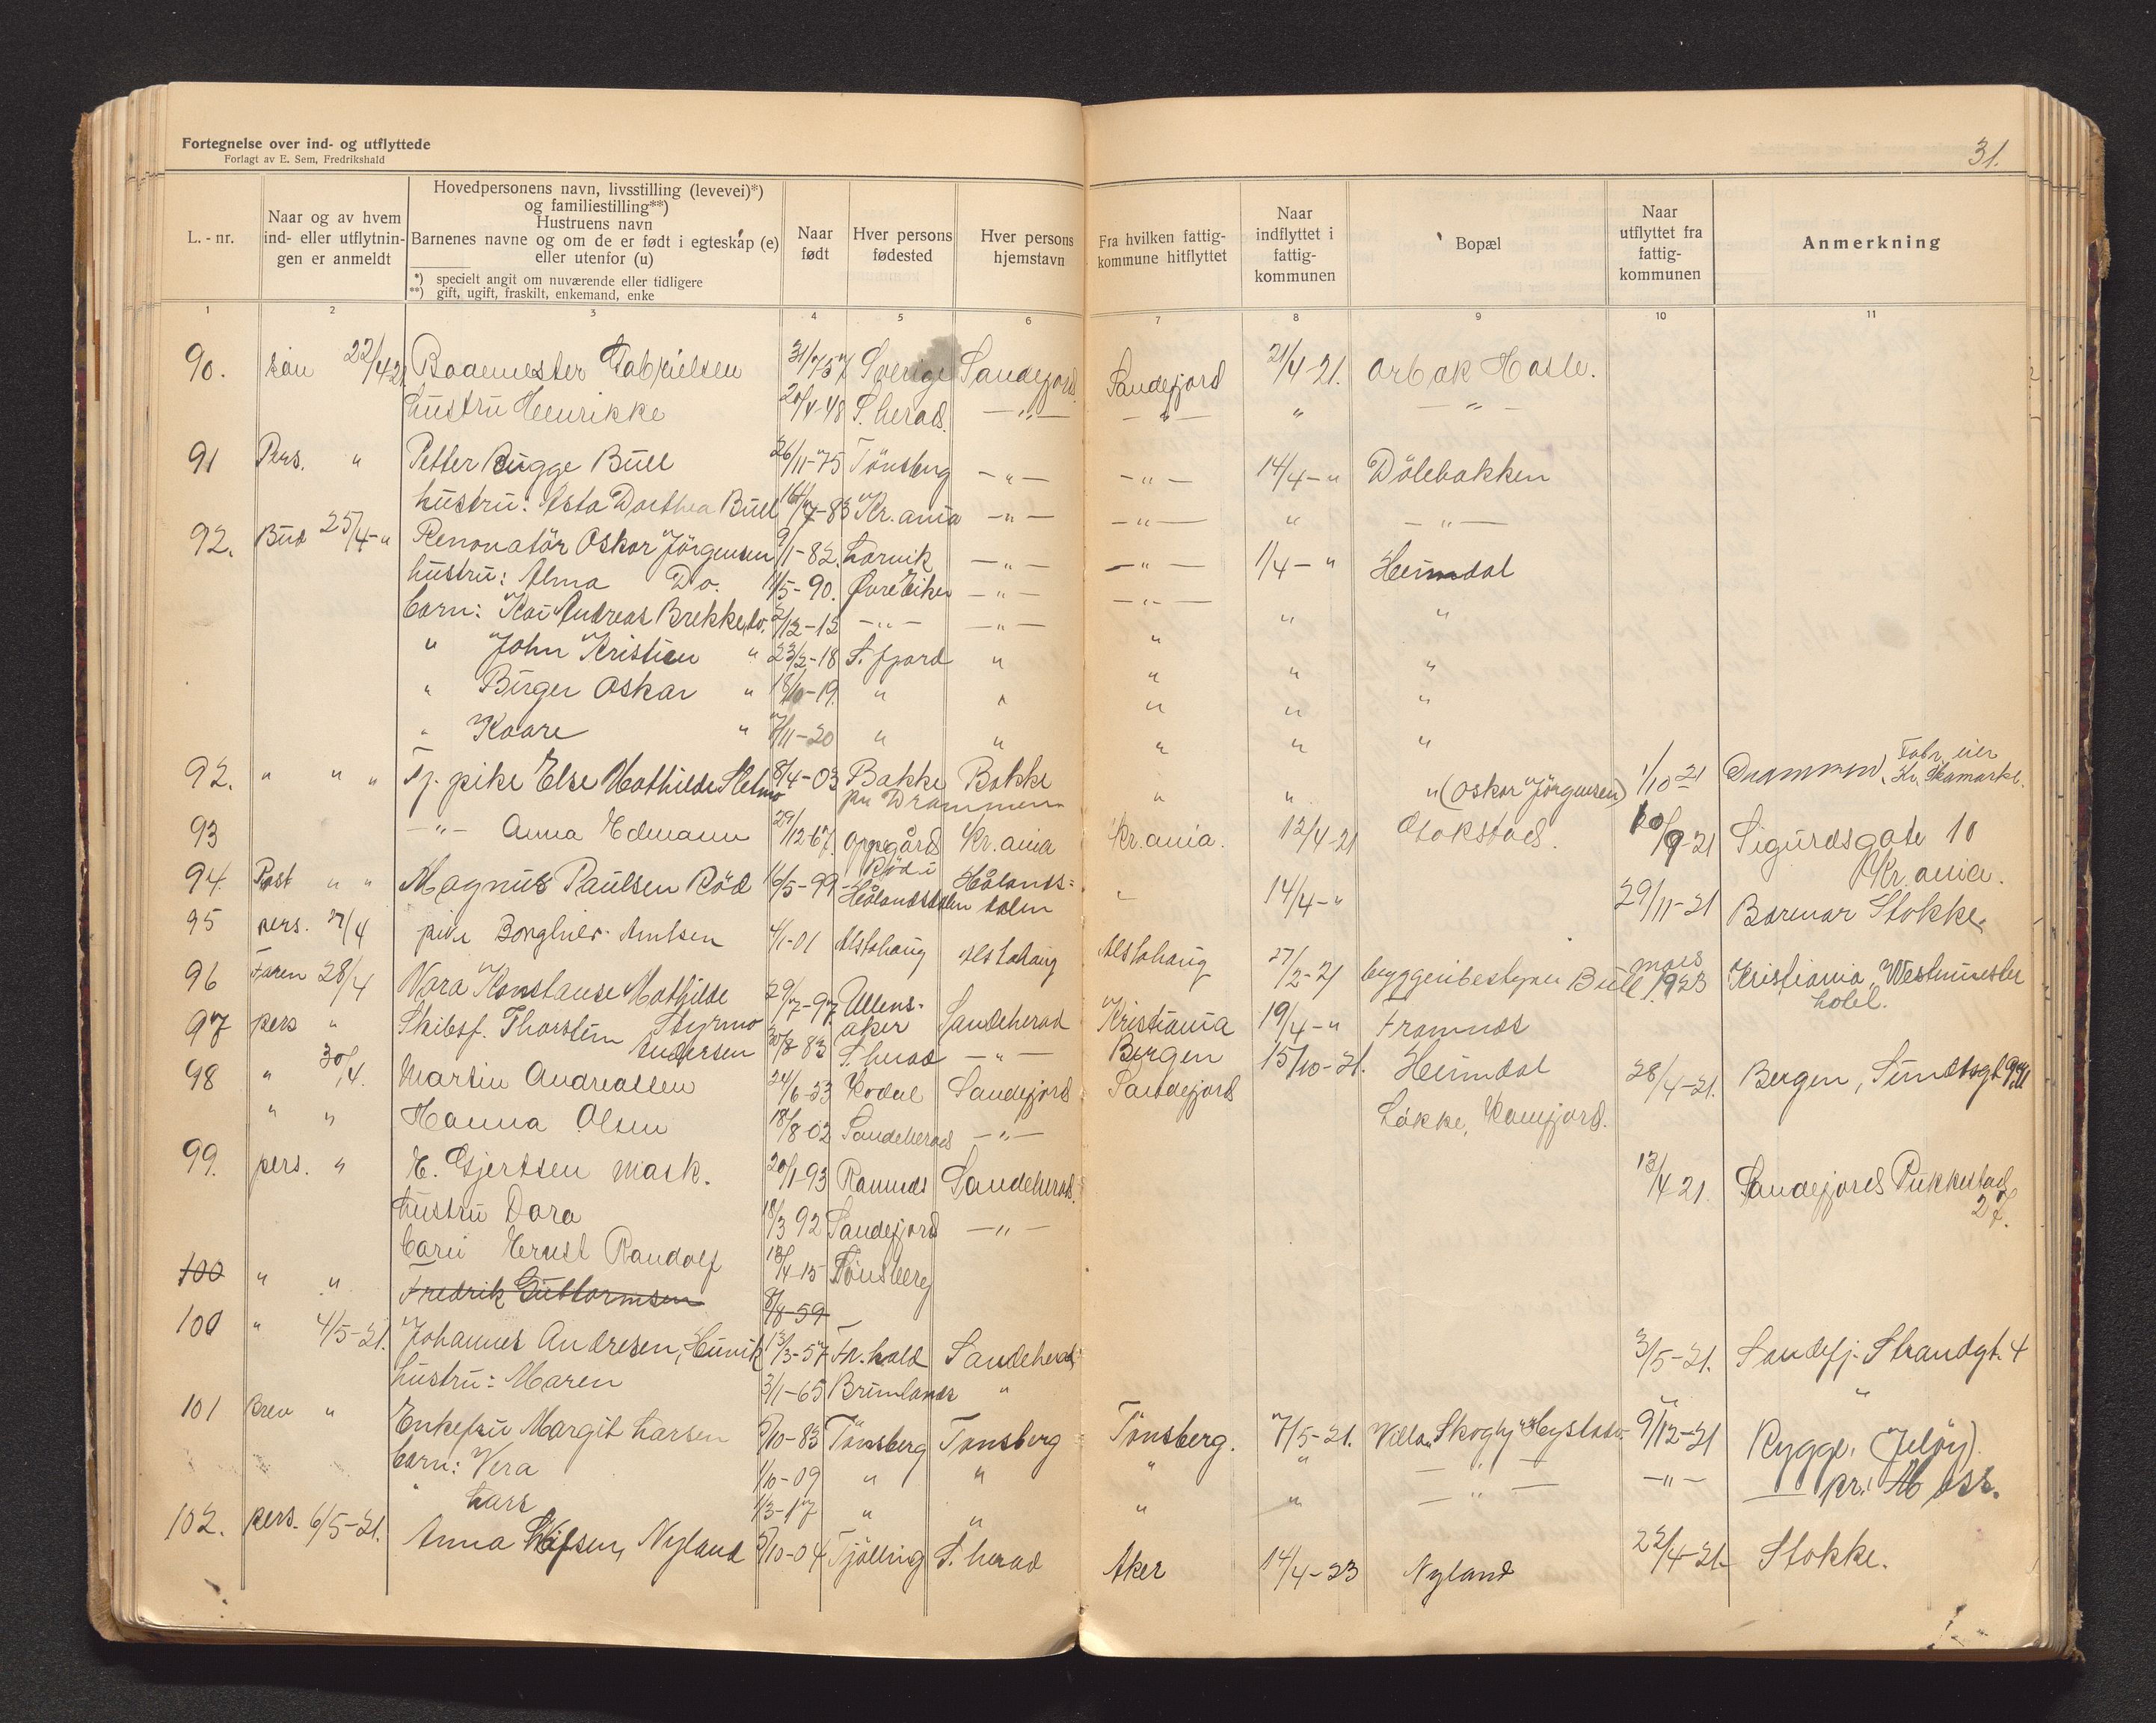 Fortegnelse over ind- og utflyttede
Forlagt av E. Sem, Fredrikshald
31.
L.-nr.
Naar og av hvem
ind- eller utflytnin-
gen er anmeldt
Hovedpersonens navn, livsstilling (levevei)*)
og familiestilling**)
Hustruens navn
Barnenes navne og om de er født i egteskap (e)
eller utenfor (u)
*) specielt angit om nuværende eller tidligere
**) gift, ugift, fraskilt, enkemand, enke
Naar
født
Hver persons
fødested
Hver persons
hjemstavn
Fra hvilken fattig-
kommune hitflyttet
Naar
indflyttet i
fattig-
kommunen
Bopæl
Naar
utflyttet fra
fattig-
kommunen
Anmerkning
1 2 3 4 5 6 7 8 9 10 11
90. 22/4 21 Baademester Gabrielsen Sverige Sandefjord Sandefjord 21/4-21. Hasle.
hustru Henrikke 20/4-48 S. herad. —"— —"— " —"—
91 Pers. " Petter Bugge Bull 26/11-75 Tönsberg —"— —"— 14/4-" Dölebakken
hustru: Asta Dorthea Bull 16/7-83 Kr.ania —"— —"— " —"—
92. Bud 25/4-" Renovatör Oskar Jörgensen 9/1-82. Larvik —"— —"— 1/4-" Heimdal
hustru: Alma Do. 11/5-90. Øvre Eiker —"— —"—
barn: Kai Andreas Brekke, do. 2/12-15 —"— —"— " " "
" John Kristian " 23/2-18 S. fjord " " " "
" Birger Oskar " 18/10-19. " " " " "
" Kaare " 7/11-20 " " " " "
92. " " " Tj. pike Else Mathilde Stelmo 8/4-03 Bakke Bakke " " " (Oskar Jörgensen) 1/10 21 Drammen, Fabr. eier
pr. Drammen
93 —"— Anna Edmann 29/12-67. Oppegård Kr.ania Kr.ania. 12/4-21 Stokstad. 20/9-21 Sigurdsgate 10
Kr.ania.
94 Post " " Magnus Paulsen Röd 16/5-99 Röd i Hålandsdalen Hålandsdalen " 14/4-" 29/11-21 Stokke.
95 pers. 27/4 pike Borghild Arntsen 4/1-01 Alstahaug Alstahaug Alstahaug 27/2-21 Bull mars 1923 Kristiania, Westminster
hotel.
96 Faren 28/4 Nora Konstanse Mathilde Styrmo 29/7-97 Ullensaker Sandeherad Kristiania 19/4-" Framnæs
97 pers " Skibsf. Thorstein Andersen 30/8 83 S. herad —"— Bergen 15/10-21. Heimdal 28/4-21. Bergen,
98 " 30/4. Martin Andreassen 24/6-53 Kodal Sandefjord Sandefjord Løkke, Kamfjord.
" " Hanna Olsen 18/8-02 Sandeherad —"—
99. pers. " E. Gjertsen mask. 20/1-93 Ramnes Sandeherad. 13/4 21. Sandefjord Pukkestad
27.
hustru Dora 18/3 92 Sandefjord —"—
barn Ernst Randolf 13/4-15 Tönsberg
100 " " Fredrik Guttormsen 8/8-59
100 " 4/5-21. Johannes Andresen, 13/3-57 Fr. hald Sandeherad 3/5-21. Sandefj. Strandgt. 4
hustru: Maren 3/1-65 Brunlanes " "
101 Brev " Enkefru Margit Larsen 5/10-83 Tönsberg Tönsberg Tönsberg. 7/5-21. Villa "Skogly" Hystad 9/12-21 Rygge, (Jelöy).
barn: Vera 1/10-09 " " " " —"— —"— pr. Moss.
" Lars 1/3-17 " " " " —"—
102. pers. 6/5-21. Anna Nyland 5/10-04 Tjölling S. herad Aker 14/4-23 Nyland 22/4-21 Stokke.